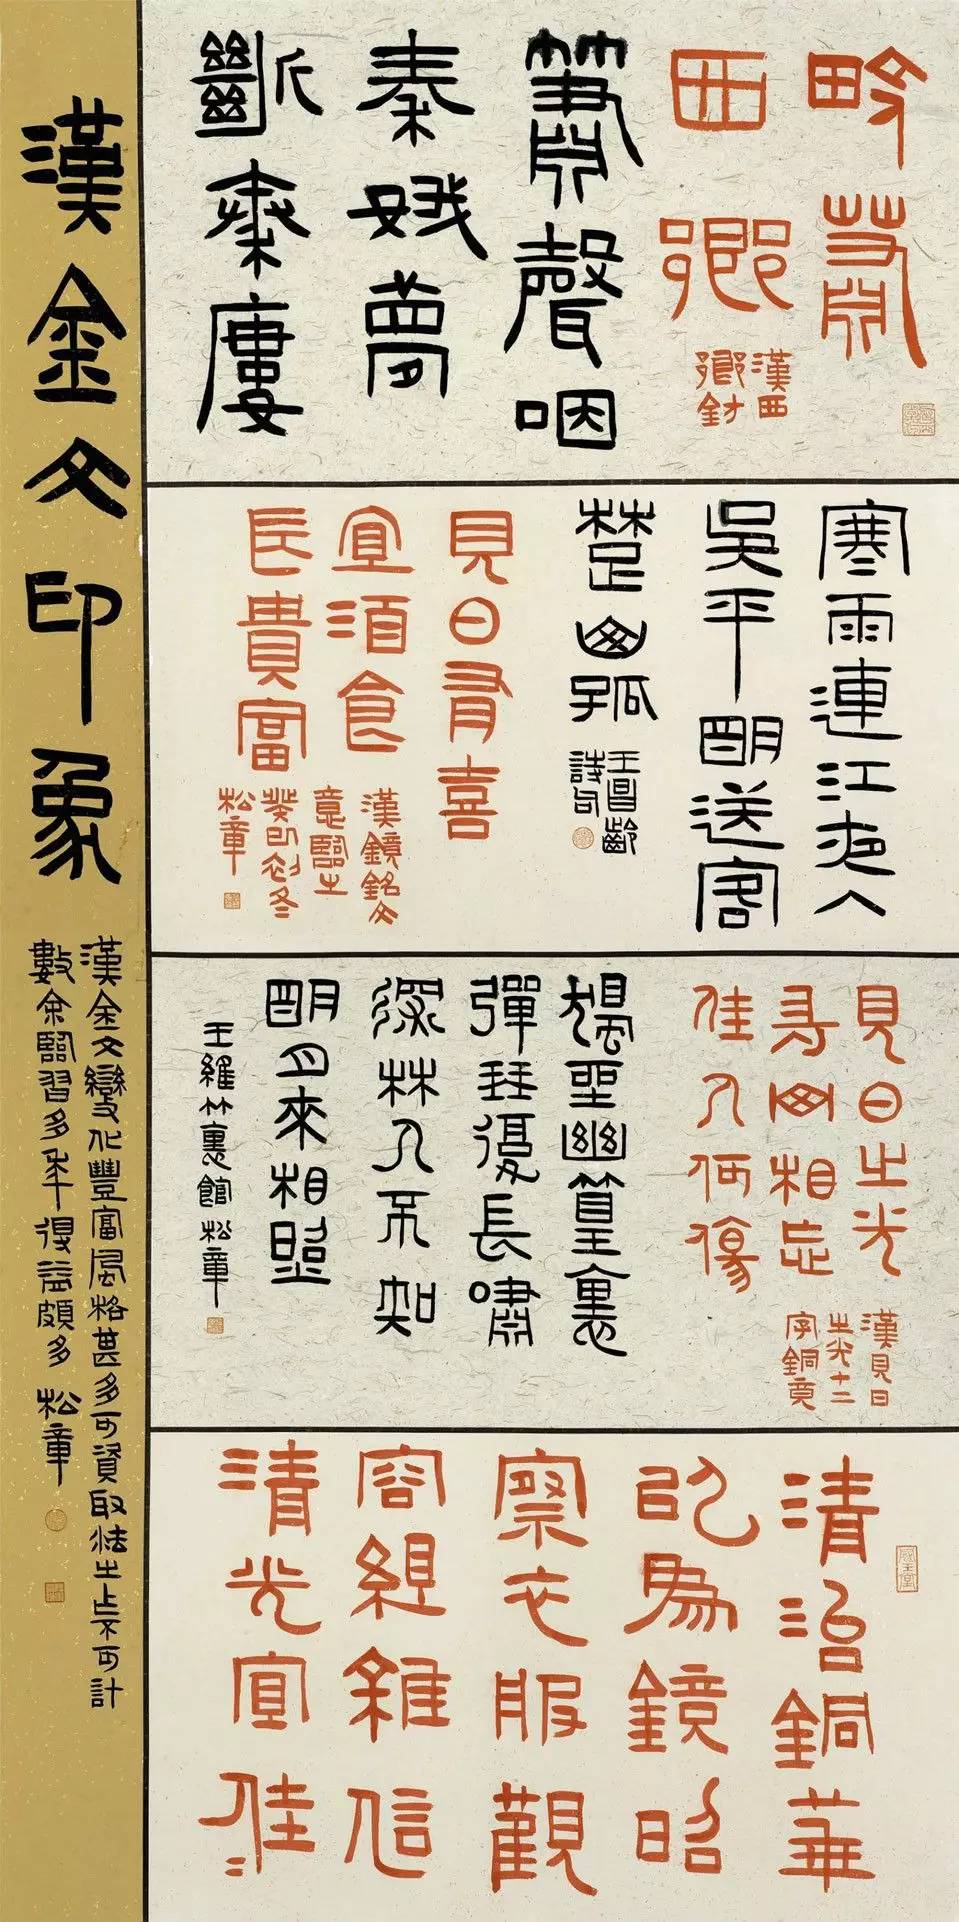 漢金文印象
漢金文變化豐富風格甚多可資取法之不可計
數余臨習多年得益頗多 松章
西鄉
漢西
鄉鈁
簫聲咽
秦娥夢
斷秦樓
寒雨連江夜入
吳平明送客
楚山孤
王昌齡
詩句
見日有喜
宜酒食
長貴富
漢鏡銘文
意臨之
癸巳初冬
松章
見日之光
長毋相忘
佳人何傷
漢見日
之光十二
字銅竟
獨坐幽篁裏
彈琴復長嘯
深林人不知
明月來相照
王維竹裏館松章
清冶銅華
以為鏡昭
察衣服觀
容組雜信
清光宜佳